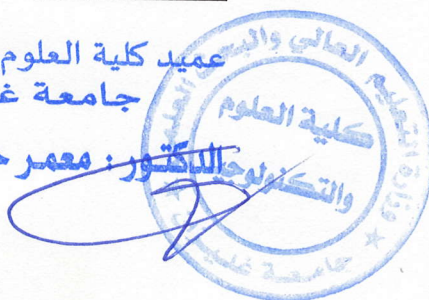 عميد كلية العلوم
جامعة
الدكتور : معمر
وزارة التعليم العالي والبحث
كلية العلوم
والتكنولوجيا
جامعة